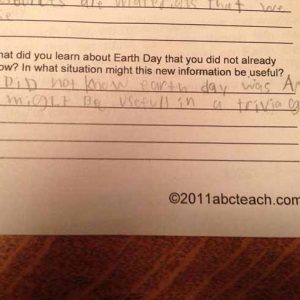 sources are materials that we
hat did you learn about Earth Day that you did not already
ow? In what situation might this new information be useful?
I Did not know earth day was Ap
might Be usefull in a trivia g
©2011abcteach.com